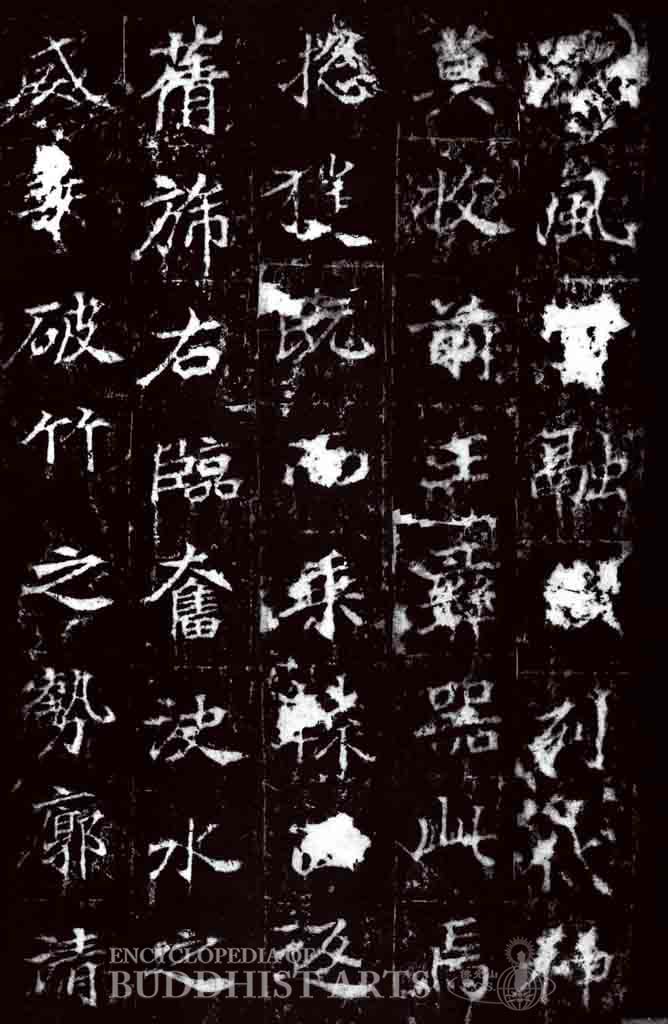 風融列代神
莫收前王彝器此焉
摠既而乘返
蒨旆右臨奮決水之
威乘破竹之勢廓清
ENCYCLOPEDIA OF
BUDDHIST ARTS